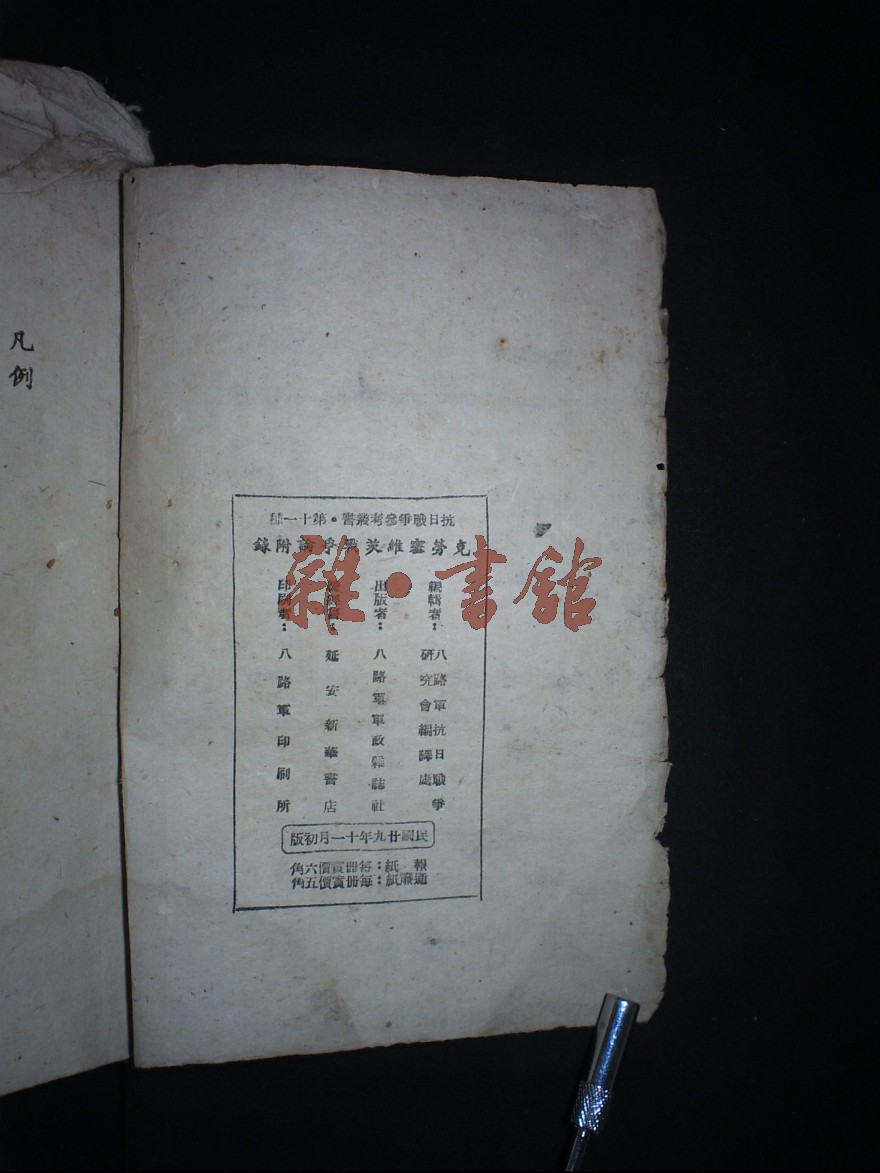 抗日戰爭參考叢書·第十一種
克勞塞維茨戰爭論附錄
編輯者：八路軍抗日戰爭研究會編譯處
出版者：八路軍軍政雜誌社
延安新華書店
印刷者：八路軍印刷所
民國廿九年十一月初版
報紙：每冊實價六角
通廉紙：每冊實價五角
凡例
雜·書館